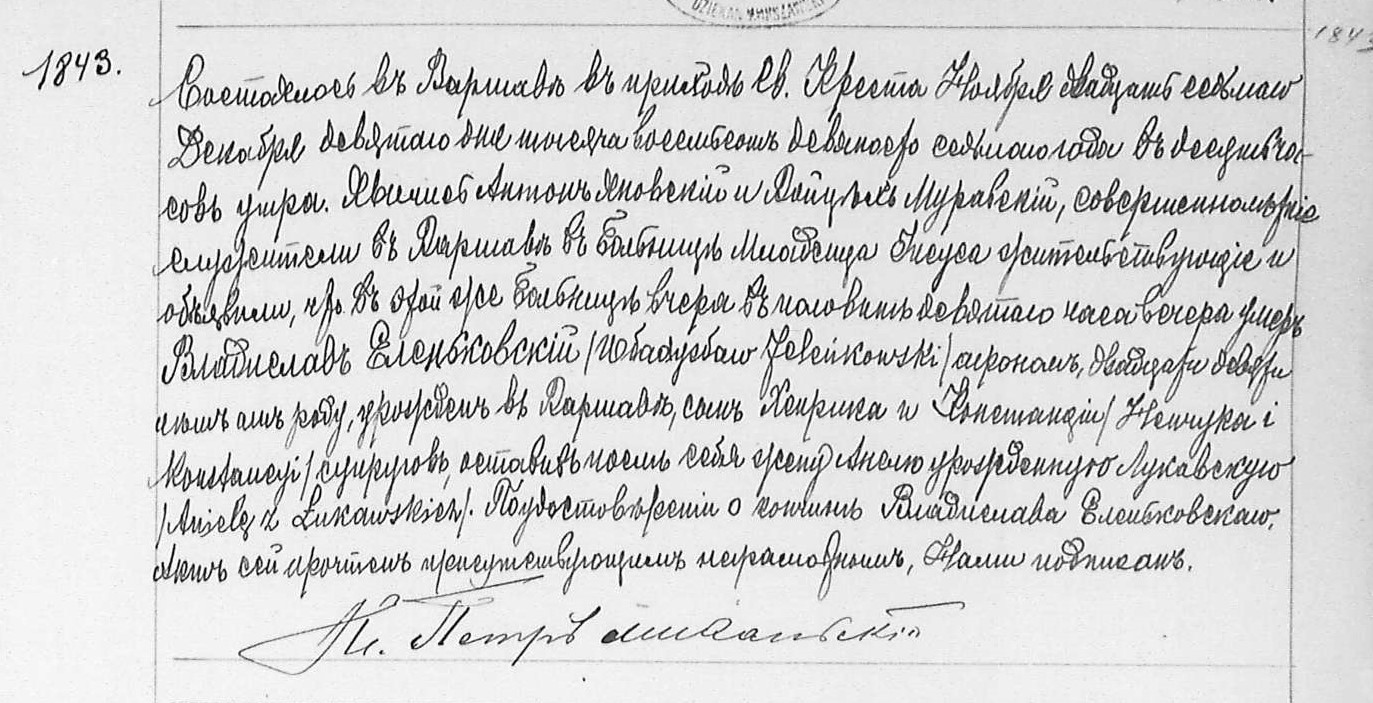 DZIEKAN WARSZAWSKI
1843.
1843
Состоялось въ Варшавѣ въ приходѣ Св. Креста Ноября двадцать седьмаго
Декабря девятаго дня тысяча восемьсотъ девяносто седьмаго года въ десять ча-
совъ утра. Явились Антонъ Яновскій и Войцѣхъ Муравскій, совершеннолѣтніе
служители въ Варшавѣ въ Больницѣ Младенца Іисуса жительствующіе и
объявили, что въ этой же Больницѣ вчера въ половинѣ девятаго часа вечера умеръ
Владиславъ Еленьковскій /Władysław Jeleńkowski/ агрономъ, двадцати девяти
лѣтъ отъ роду, урожденъ въ Варшавѣ, сынъ Хенрика и Констанціи/ Henryka i
Konstancyi/ супруговъ, оставивъ послѣ себя жену Анелю урожденную Лукавскую
/Anielę z Łukawskich/. По удостовѣреніи о кончинѣ Владислава Еленьковскаго,
Актъ сей прочтенъ присутствующимъ неграмотнымъ, Нами подписанъ.
Кс. Петръ